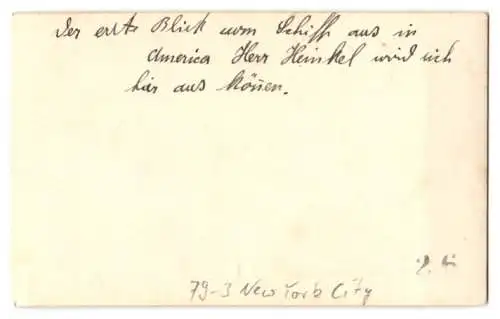 Der erste Blick vom Schiff aus in
America Herr Heinkel wird sich
hir aus können.
79-3 New York City